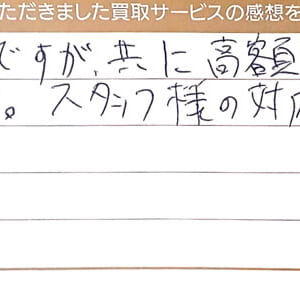 ただきました買取サービスの感想を
ですが、共に高額
。スタッフ様の対応